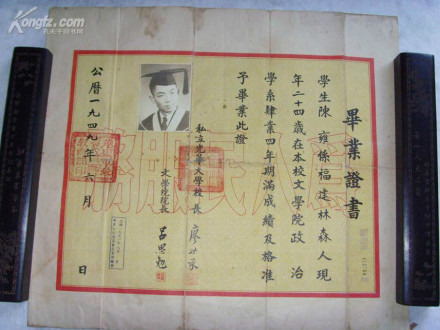 畢業證書
學生陳雍係福建林森人現
年二十四歲在本校文學院政治
學系肄業四年期滿成績及格准
予畢業此證
私立光華大學校長 廖世承
文學院院長 呂思勉
公曆一九四九年六月 日
為人民服務
Kongfz.com
孔夫子旧书网